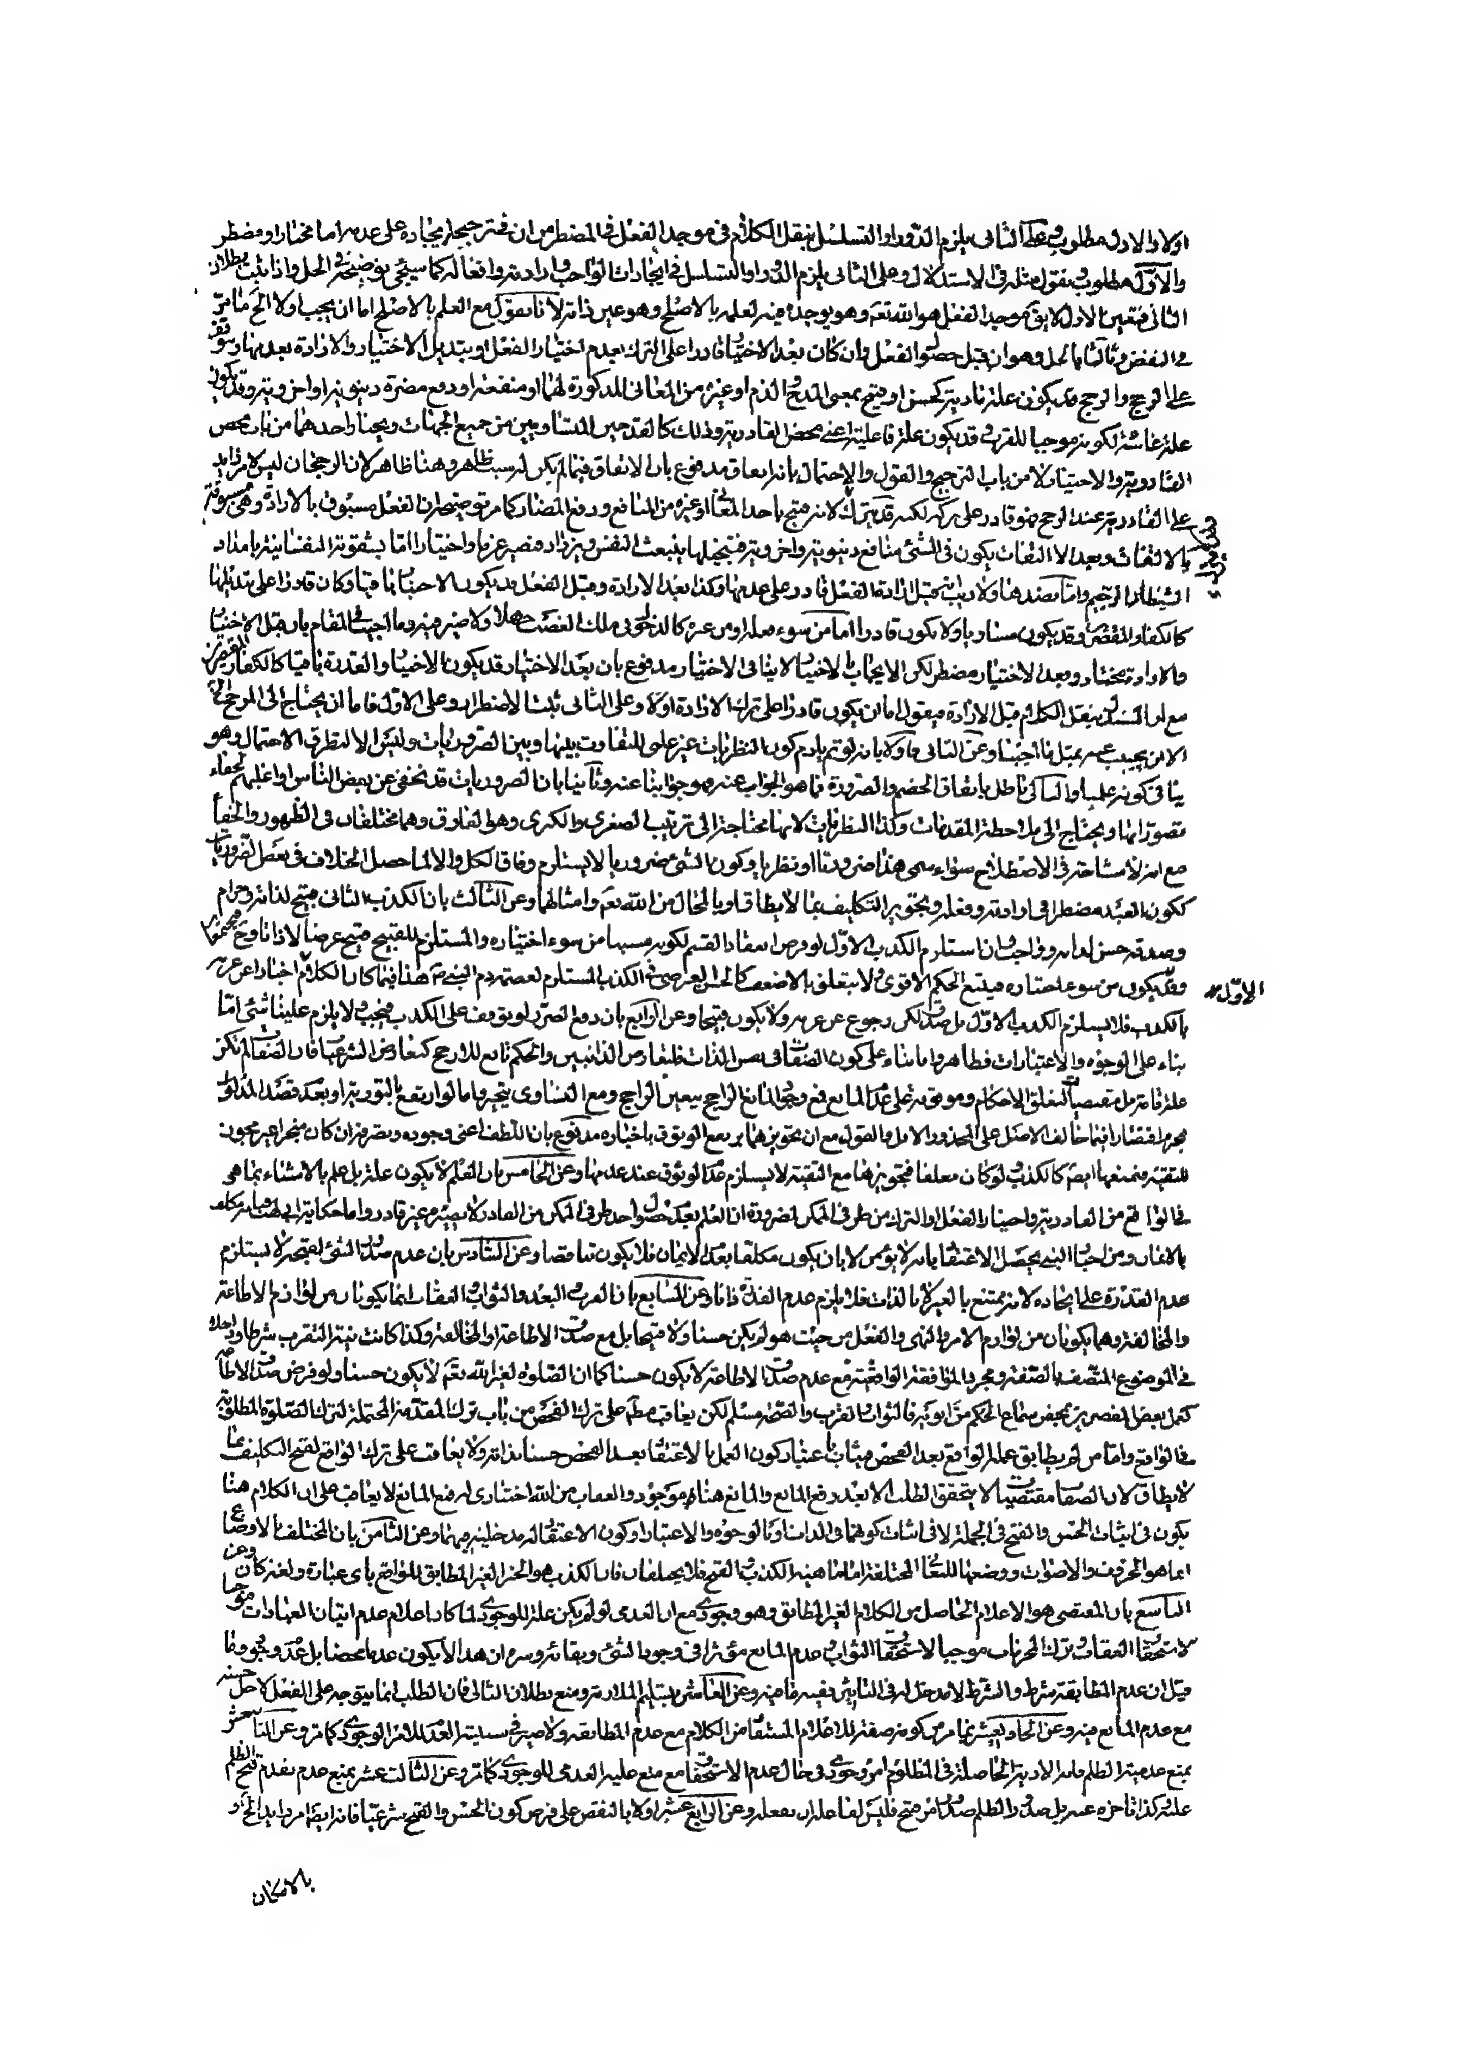 اولا والاول مطلوب وعلى الثانى يلزم الدور او التسلسل بنقل الكلام فى موجد الفعل فى المضطر من ان فترجيحه لايجاده على عدمه اما مختار او مضطر
والاول مطلوب بقوله مثله فى الاستدلال وعلى الثانى يلزم الدور او التسلسل فى ايجادات الواجب وارادته وافعاله كما سيجئ توضيحه فى الحل واذا ثبت بطلان
الثانى فتعين الاول لا يق موجد الفعل هو الله تعم وهو يوجده فيه لعلمه بالاصلح وهو عين ذاته لانا نقول مع العلم بالاصلح اما ان يجب اولا الخ ما مر
فى النقض وثالثا بالحل وهو ان قبل حصول الفعل وان كان بعد الاختيار قادرا على الترك بعدم اختيار الفعل او بتبديل الاختيار والارادة بعدمها وتوقف
على المرجح والمرجح قد يكون علة مادية كحسن او قبح بمعنى المدح والذم او غيره من المعانى المذكورة لهما او منفعة او دفع مضرة دنيوية او اخروية وقد يكون
علة غائية لكونه موجبا للقرب وقد يكون علة فاعلية اعنى محض القادرية وذلك كالقدحين المتساويين من جميع الجهات ويختار احدهما من باب محض
القادرية والاختيار لا من باب الترجيح والقول والاحتمال بانه اتفاق مدفوع بان الاتفاق فيما لم يكن له سبب ظاهر وهنا ظاهر لان الرجحان ليس لامر زايد
على القادرية عند المرجح فهو قادر على تركه لكنه قد يترك لانه متبح باحد المعانى او غيره من المنافع ودفع المضار كما مر توضيحه ان الفعل مسبوق بالارادة وهى مسبوقة
بالالتفات وبعد الالتفات يكون فى الشئ منافع دنيوية واخروية فتخيلها ينبعث النفس ويزداد فيصير عزما واختيارا اما بشقوته النفسانية بامداد
الشيطان الرجيم واما بضدها ولا ريب قبل ارادة الفعل قادر على عدمها وكذا بعد الارادة وقبل الفعل قد يكون الاختيار باقيا وكان قادرا على تبديلها
كالكفار والنقص وقد يكون مساويا ولا يكون قادرا اما من سوء فعله او من غيره كالدخول فى ملك الغصب جهلا ولا ضير فيه وما اجيب فى المقام بان قبل الاختيار
والارادة مختار وبعد الاختيار مضطر لكن الايجاب بالاختيار لا ينافى الاختيار مدفوع بان بعد الاختيار قد يكون الاختيار والقدرة باقيا كالكفار
مع ان المستدل ينقل الكلام قبل الارادة فيقول اما ان يكون قادرا على ترك الارادة اولا وعلى الثانى ثبت الاضطرار وعلى الاول فاما ان يحتاج الى المرجح ام لا
الا ان يجيب عنه بمثل ما اجبنا وعن الثانى اولا بانه لو تم يلزم كون النظريات غير علمى للتفاوت بينها وبين الضروريات وليس الا لتطرق الاحتمال وهو
ينافى كونه علميا والتالى باطل باتفاق الخصم والضرورة فما هو الجواب عنه فهو جوابنا عنه وثانيا بان الضروريات قد تخفى عن بعض الناس او اغلبهم لخفاء
تصوراتها ويحتاج الى ملاحظة المقدمات وكذا النظريات لانها محتاجة الى ترتيب الصغرى والكبرى وهو الفارق وهما مختلفان فى الظهور والخفأ
مع انه لا مشاحة فى الاصطلاح سواء سمى هذا ضروريا او نظريا وكون الشئ ضروريا لا يستلزم وفاق الكل والا لما حصل الخلاف فى بعض الضروريات
ككون العبد مضطرا فى ارادته وفعله وتجويز التكليف بما لا يطاق او بالمحال من الله تعم وامثالهما وعن الثالث بان الكذب الثانى قبيح لذاته وحرام
وصدقه حسن لذاته وواجب وان استلزم الكذب الاول لو فرض انعقاد القسم لكونه مسببا من سوء اختياره والمستلزم للقبيح قبيح عرضا لا ذاتا وح
وقد يكون من سوء اختياره فيتبع الحكم الاقوى ولا يتعلق بالاضعف كالحسن العرضى فى الكذب المستلزم لعصمة دم النبى ص هذا فيما كان الكلام الاول اخبارا عن عزمه
بالكذب فلا يستلزم الكذب الاول بل صدق لكن رجوع عن عزمه ولا يكون قبيحا وعن الرابع بان دفع الضرر لو يتوقف على الكذب فيجب ولا يلزم علينا شئ اما
بناء على الوجوه والاعتبارات فظاهر واما بناء على كون الصفات فى نفس الذات فلتعارض الذاتيين والحكم تابع للارجح كتعارض الشرعيات فان الصفات لم تكن
علة تامة بل مقتضيات لتعلق الاحكام وموقوفة على عدم المانع فمع وجود المانع الراجح يتعين الراجح ومع التساوى يتخير واما لو ارتفع بالتورية او بعد قصد المدلول
فيحرم اقتصارا فيما خالف الاصل على المحذور الاول والقول مع ان تجويزهما يرفع الوثوق باخباره مدفوع بان اللطف اعنى وجوده وتصرفه ان كان منجزا غير مجوز
للتقية فيمنعها ايضا كالكذب ولو كان معلقا فتجويزهما مع التقية لا يستلزم عدم الوثوق عند عدمها وعن الخامس بان العلم لا يكون علة بل علم بالاشياء بما هى
فى الواقع من القادرية واختيار الفعل او الترك من طرفى الممكن لضرورة ان العلم بعد حصول احد طرفى الممكن من القادر لا يصيره غير قادر واما حكاية ابى لهب وصار مكلفا
بالايمان ومن اخبار النبى يحصل الاعتقاد بانه لا يؤمن لا بان يكون مكلفا بعدم الايمان فلا يكون تناقضا وعن السادس بان عدم صدور الشئ لقبحه لا يستلزم
عدم القدرة على ايجاده لانه ممتنع بالغير لا بالذات فلا يلزم عدم القدرة ذاتا وعن السابع بان القرب والبعد والثواب والعقاب انما يكونان من لوازم الاطاعة
والمخالفة وهما يكونان من لوازم الامر والنهى والفعل من حيث هو لم يكن حسنا ولا قبيحا بل مع صدق الاطاعة او المخالفة وكذا كانت نية التقرب شرطا وداخلا
فى الموضوع المتصف بالصفة ومجرد الموافقة الواقعية مع عدم صدق الاطاعة لا يكون حسنا كما ان الصلوة لغير الله تعم لا يكون حسنا ولو فرض صدق الاطاعة
كعمل بعض المقصرين بمحض سماع الحكم من ابويه فالثواب والقرب والصحة مسلم لكن يعاقب مطم على ترك الفحص من باب ترك المقدمة المحتملة لترك الصلوة المطلوبة
فى الواقع واما من لم يطابق عمله الواقع بعد الفحص فيثاب باعتبار كون العمل بالاعتقاد بعد الفحص حسنا بذاته ولا يعاقب على ترك الواقع لقبح التكليف بما
لا يطاق لان الصفات مقتضيات لا يتحقق الطلب الا بعد رفع المانع والمانع هنا موجود والعقاب من الله اختيارى له رفع المانع لا يعاقب على ان الكلام هنا
يكون فى اثبات الحسن والقبح فى الجملة لا فى اثبات كونهما فى الذات او بالوجوه والاعتبار او كون الاعتقاد له مدخلية فيهما وعن الثامن بان المختلف بالاوضاع
انما هو الحروف والاصوات ووضعها للمعانى المختلفة اما ماهية الكذب والقبح فلا يختلفان فان الكذب هو الخبر الغير المطابق للواقع باى عبارة ولغة كان وعن
التاسع بان المقتضى هو الاعلام الحاصل من الكلام الغير المطابق وهو وجودى مع ان العدمى لو لم يكن علة للوجودى لما كان اعلام عدم اتيان العبادات موجبا
لاستحقاق العقاب وترك المحرمات موجبا لاستحقاق الثواب وعدم المانع مؤثرا فى وجود الشئ وبقائه وسره ان هذا لا يكون عدما محضا بل عدم وجود وما
قيل ان عدم المطابقة شرط والشرط لا مدخل له فى التاثير ففيه ما فيه وعن العاشر بتسليم الملازمة ومنع بطلان الثانى فان الطلب انما يتوجه على الفعل لاجل حسنه
مع عدم المانع فيه وعن الحاديعشر بما مر من كونه صفة للاعلام المستفاد من الكلام مع عدم المطابقة ولا ضير فى سببية العدم للامر الوجودى كما مر وعن الثانيعشر
بمنع عدمية الظلم فانه الاذية الحاصلة فى المظلوم امر وجودى فى حال عدم الاستحقاق مع منع علية العدمى للوجودى كما مر وعن الثالث عشر بمنع عدم تقدم قبح الظلم
علته وكذا تاخره عنه بل صدق والظلم صدور امر قبيح فليس لفاعله ان يفعله وعن الرابع عشر اولا بالنقض على فرض كون الحسن والقبح شرعيا فانه ايضا امر زايد الخ او
بالامكان